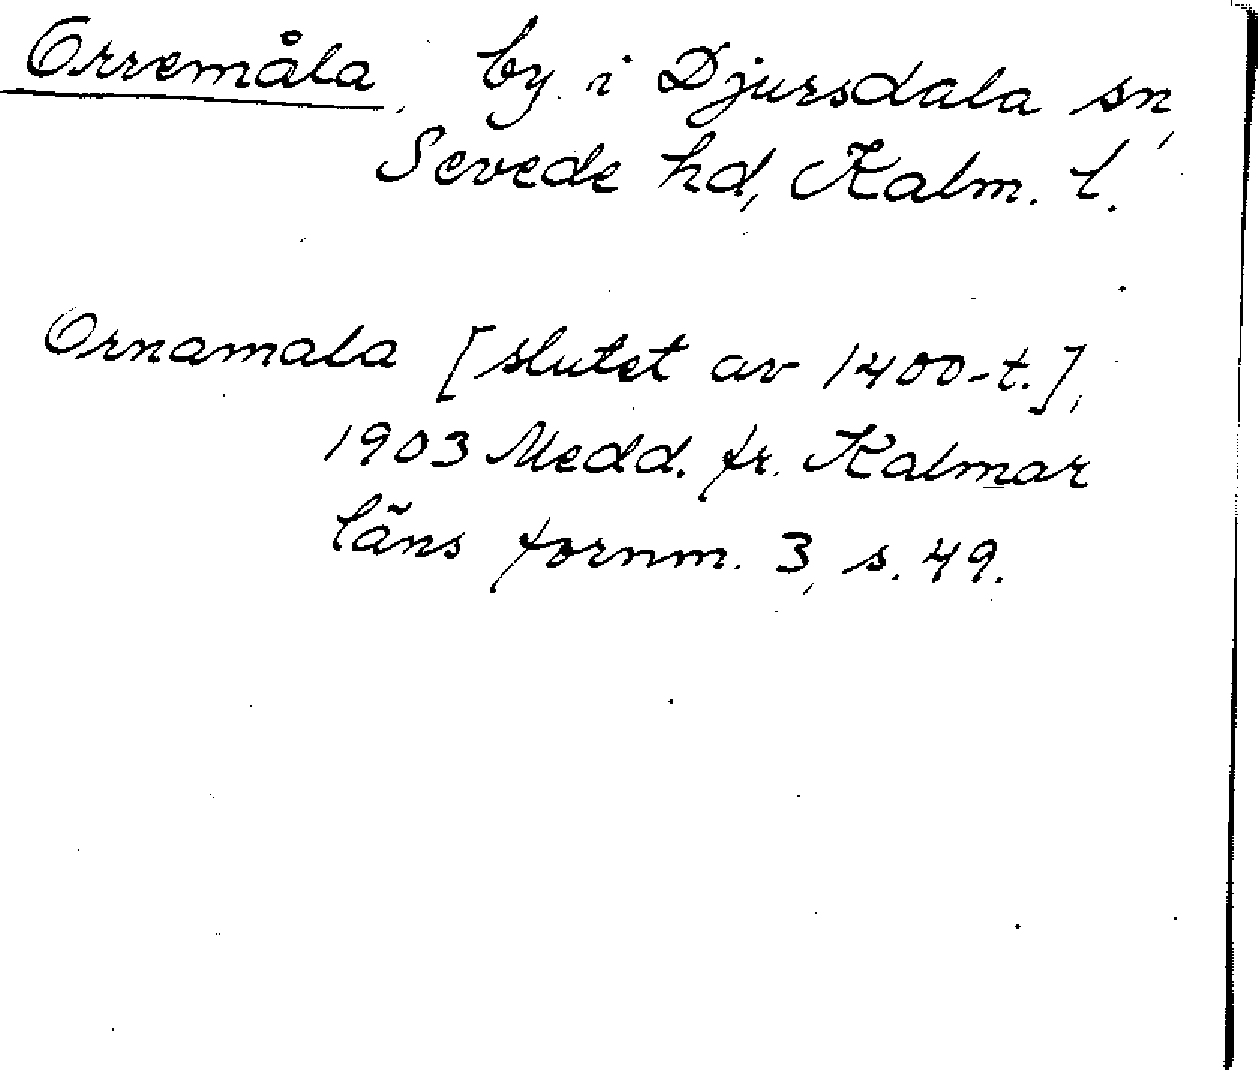 Orremåla, by i Djursdala sn,
Sevede hd, Kalm. l.
Ornamala [slutet av 1400-t.],
1903 Medd. fr. Kalmar
läns fornm. 3, s. 49.